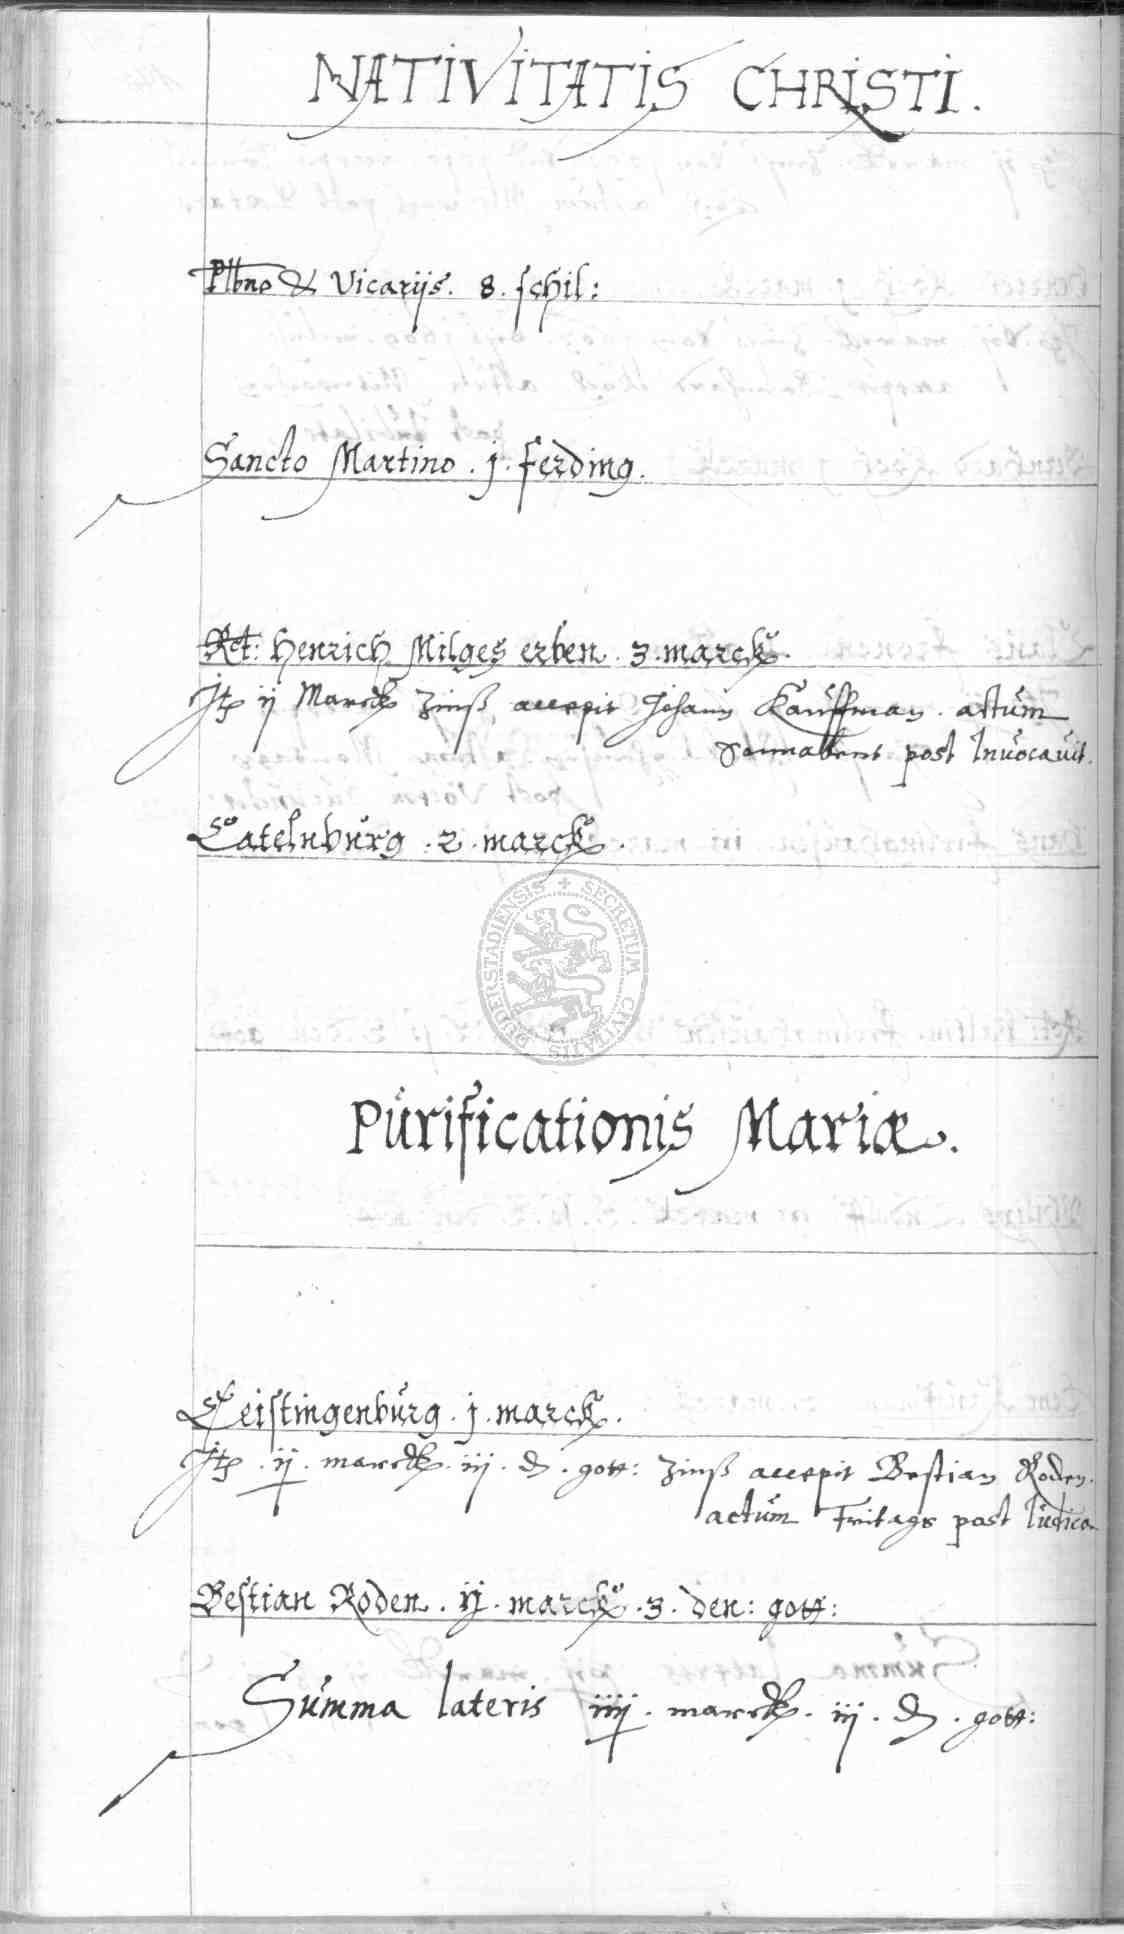 NATIVITATIS CHRISTI.
Plbno & Vicarijs. 8. schil:
Sancto Martino. j. ferding.
Rct: Henrich Milges erben. 3. marck.
Jt ij Marck Zinß accepit Johann Kauffman. actum
Sonnabent post Invocavit.
Catelnburg. 2. marck.
SECRETUM CIVITATIS DUDERSTADIENSIS
Purificationis Mariæ.
Leistingenburg. j. marck.
Jt. ij. marck. iij. d. gott: Zinß accepit Bestian Roden.
actum Freitags post Iudica
Bestian Roden. ij. marck. 3. den: gott:
Summa lateris iiij. marck. iij. d. gott: